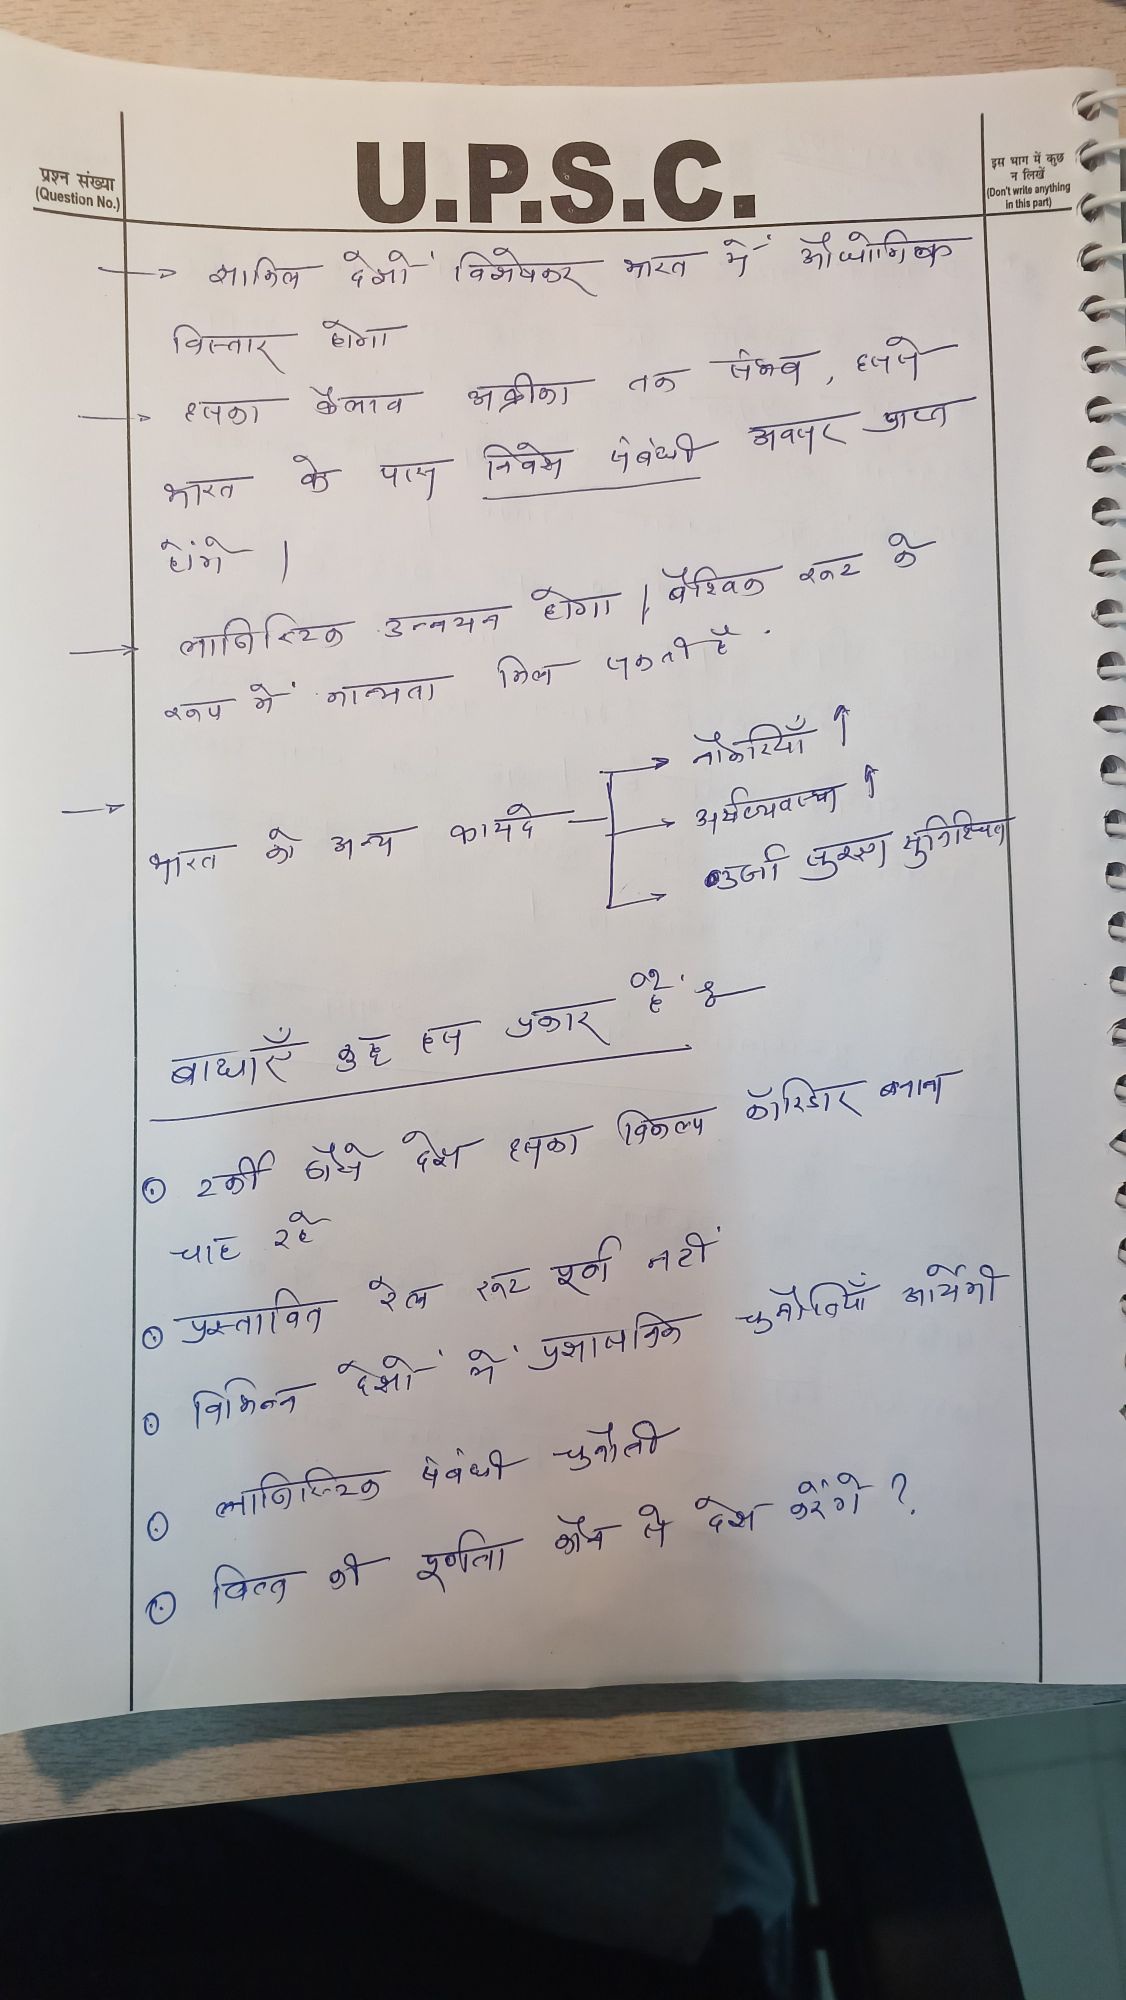 प्रश्न संख्या
(Question No.)
U.P.S.C.
इस भाग में कुछ
न लिखें
(Don't write anything
in this part)
→ शामिल देशों विशेषकर भारत में औद्योगिक
विस्तार होगा
→ इसका फैलाव अफ्रीका तक संभव, इससे
भारत के पास निवेश संबंधी अवसर प्राप्त
होंगे |
→ लाजिस्टिक उन्नयन होगा | वैश्विक रूट के
रूप में मान्यता मिल सकती है .
→ नौकरियाँ ↑
→ भारत को अन्य फायदे → अर्थव्यवस्था ↑
→ उर्जा सुरक्षा सुनिश्चित
बाधाएँ कुछ इस प्रकार हैं :-
⊙ टर्की जैसे देश इसका विकल्प कॉरिडोर बनाना
चाह रहे
⊙ प्रस्तावित रेल रूट पूर्ण नहीं
⊙ विभिन्न देशों में प्रशासनिक चुनौतियाँ आयेंगी
⊙ लाजिस्टिक संबंधी चुनौती
⊙ वित्त की पूर्णता कौन से देश करेंगे ?